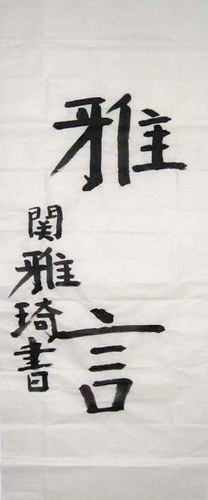 雅言
関雅琦書